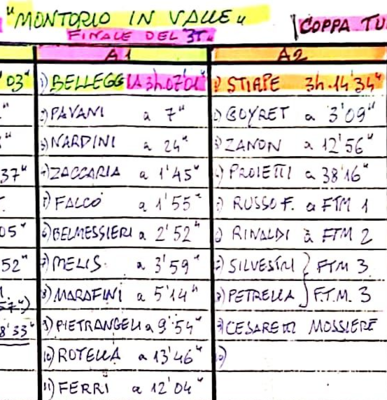 "MONTORIO IN VALLE"
FINALE DEL 3T.
COPPA TU
A1
A2
03"
37"
05"
52"
57")
8'33"
1) BELLEGGIA 3h.07'01"
2) PAVANI a 7"
3) NARDINI a 24"
4) ZACCARIA a 1'45"
5) FALCO a 1'55"
6) BELMESSIERI a 2'52"
7) MELIS a 3'59"
8) MARAFINI a 5'14"
9) PIETRANGELI a 9'54"
10) ROTELLA a 13'46"
11) FERRI a 12'04"
1) STIRPE 3h.14'34"
2) GUYRET a 3'09"
3) ZANON a 12'56"
4) PROIETTI a 38'16"
5) RUSSO F. a FTM 1
6) RINALDI a FTM 2
7) SILVESTRI } FTM 3
8) PETRELLA } F.T.M. 3
9) CESARETTI MOSSIERE
10)